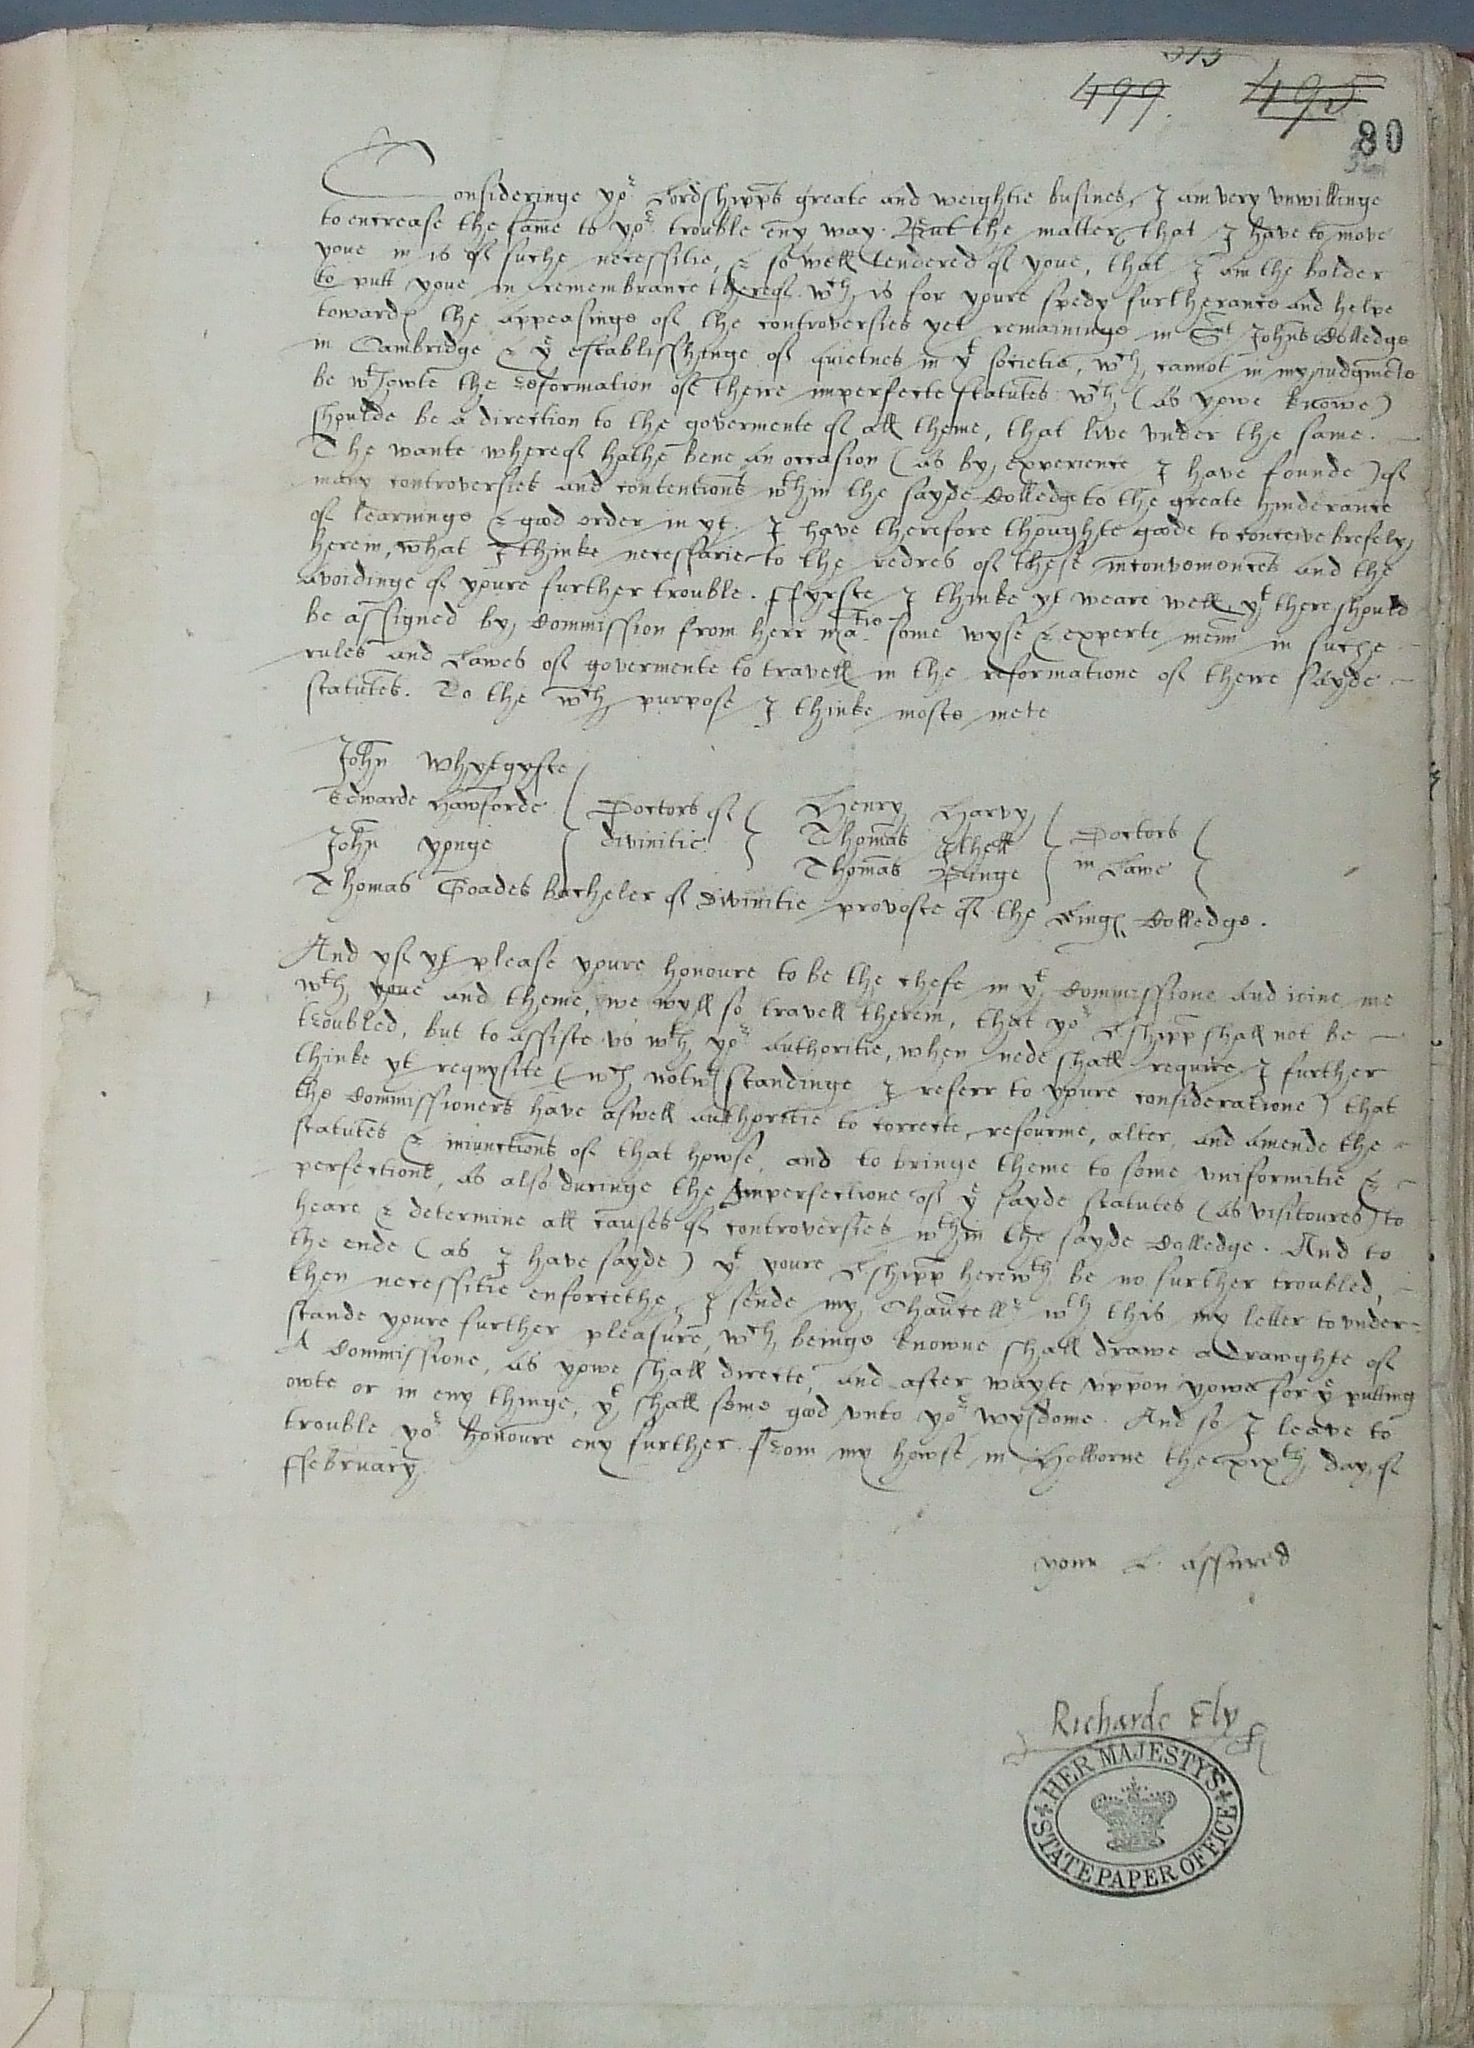 313
499. 495
80
Consideringe yor Lordshipps great and weightie busines, I am very unwillinge
to encrease the same to yor trouble eny way. But the matter that I have to move
youe in is of suche necessitie, & so well tendered of youe, that I am the bolder
to putt youe in remembrance thereof. wch is for youre spedy furtherance and helpe
towardes the appeasinge of the controversies yet remaininge in Snt Johns Colledge
in Cambridge & ye establisshinge of quietnes in yt societie, wch cannot in my judgmente
be wthowte the reformation of theire imperfecte statutes wch (as yowe knowe)
shoulde be a direction to the govermente of all theme, that live under the same.
The wante whereof hathe bene an occasion (as by experience I have founde) of
many controversies and contentions wthin the sayde Colledge to the greate hinderance
of learninge & good order in yt. I have therefore thoughte goode to conceive brefely
herein, what I thinke necessarie to the redres of these inconveniences and the
avoidinge of youre further trouble. ffyrste I thinke yt weare well, yt there should
be assigned by Commission from herr matie some wyse & experte menn in suche
rules and Lawes of govermente to travell in the reformatione of theire sayde
statutes. To the wch purpose I thinke moste mete
John Whytgyfte
Edwarde Hawforde Doctors of Henry Harvy
John Yonge divinitie Thomas Ithell Doctors
Thomas Binge in Lawe
Thomas Goades bacheler of divinitie provoste of the Kinges Colledge.
And yf yt please youre honoure to be the chefe in yt Commissione and ioine me
wth youe and theme, we wyll so travell therein, that yor Lshipp shall not be
troubled, but to assiste us wth yor authoritie, when nede shall require. I further
thinke yt requysite (wch notwthstandinge I referr to youre consideratione) that
the Commissioners have aswell authoritie to correcte, refourme, alter, and amende the
statutes & iniunctions of that howse, and to bringe theme to some uniformitie &
perfectione, as also duringe the Imperfectione of ye sayde statutes (as visitoures) to
heare & determine all causes of controversies wthin the sayde Colledge. And to
the ende (as I have sayde) yt youre Lshipp herewth be no further troubled,
then necessitie enforcethe, I sende my Chauncellr wth this my letter to under-
stande youre further pleasure, wch beinge knowne shall drawe a drawghte of
A Commissione, as yowe shall directe, and after wayte uppon yowe for ye putting
owte or in eny thinge, yt shall seme good unto yor wysdome. And so I leave to
trouble yor honoure eny further. From my howse in Holborne the xixth day of
ffebruary.
your L. assured
Richarde Ely
HER MAJESTY'S
STATE PAPER OFFICE